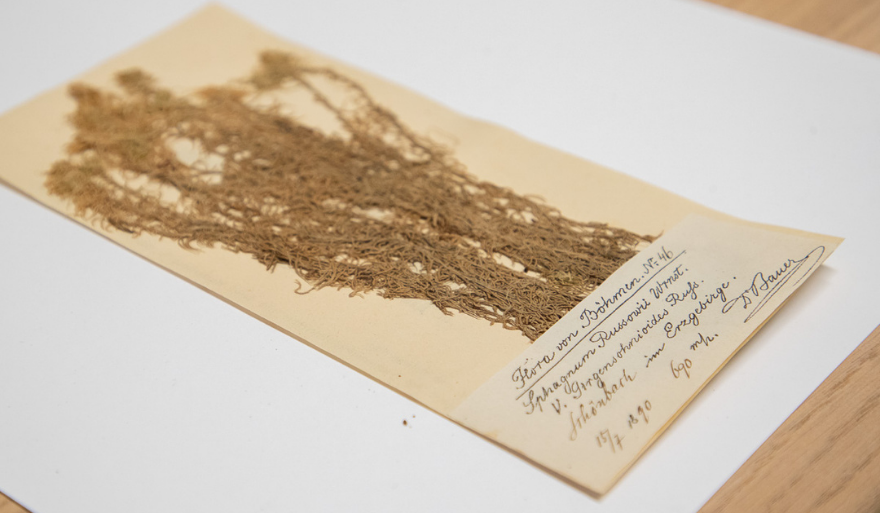 Flora von Böhmen. No. 46
Sphagnum Russowii Wrnst.
v. Girgensohnioides Russ.
Schönbach im Erzgebirge.
15/7 1890 690 mh.
Dr Bauer